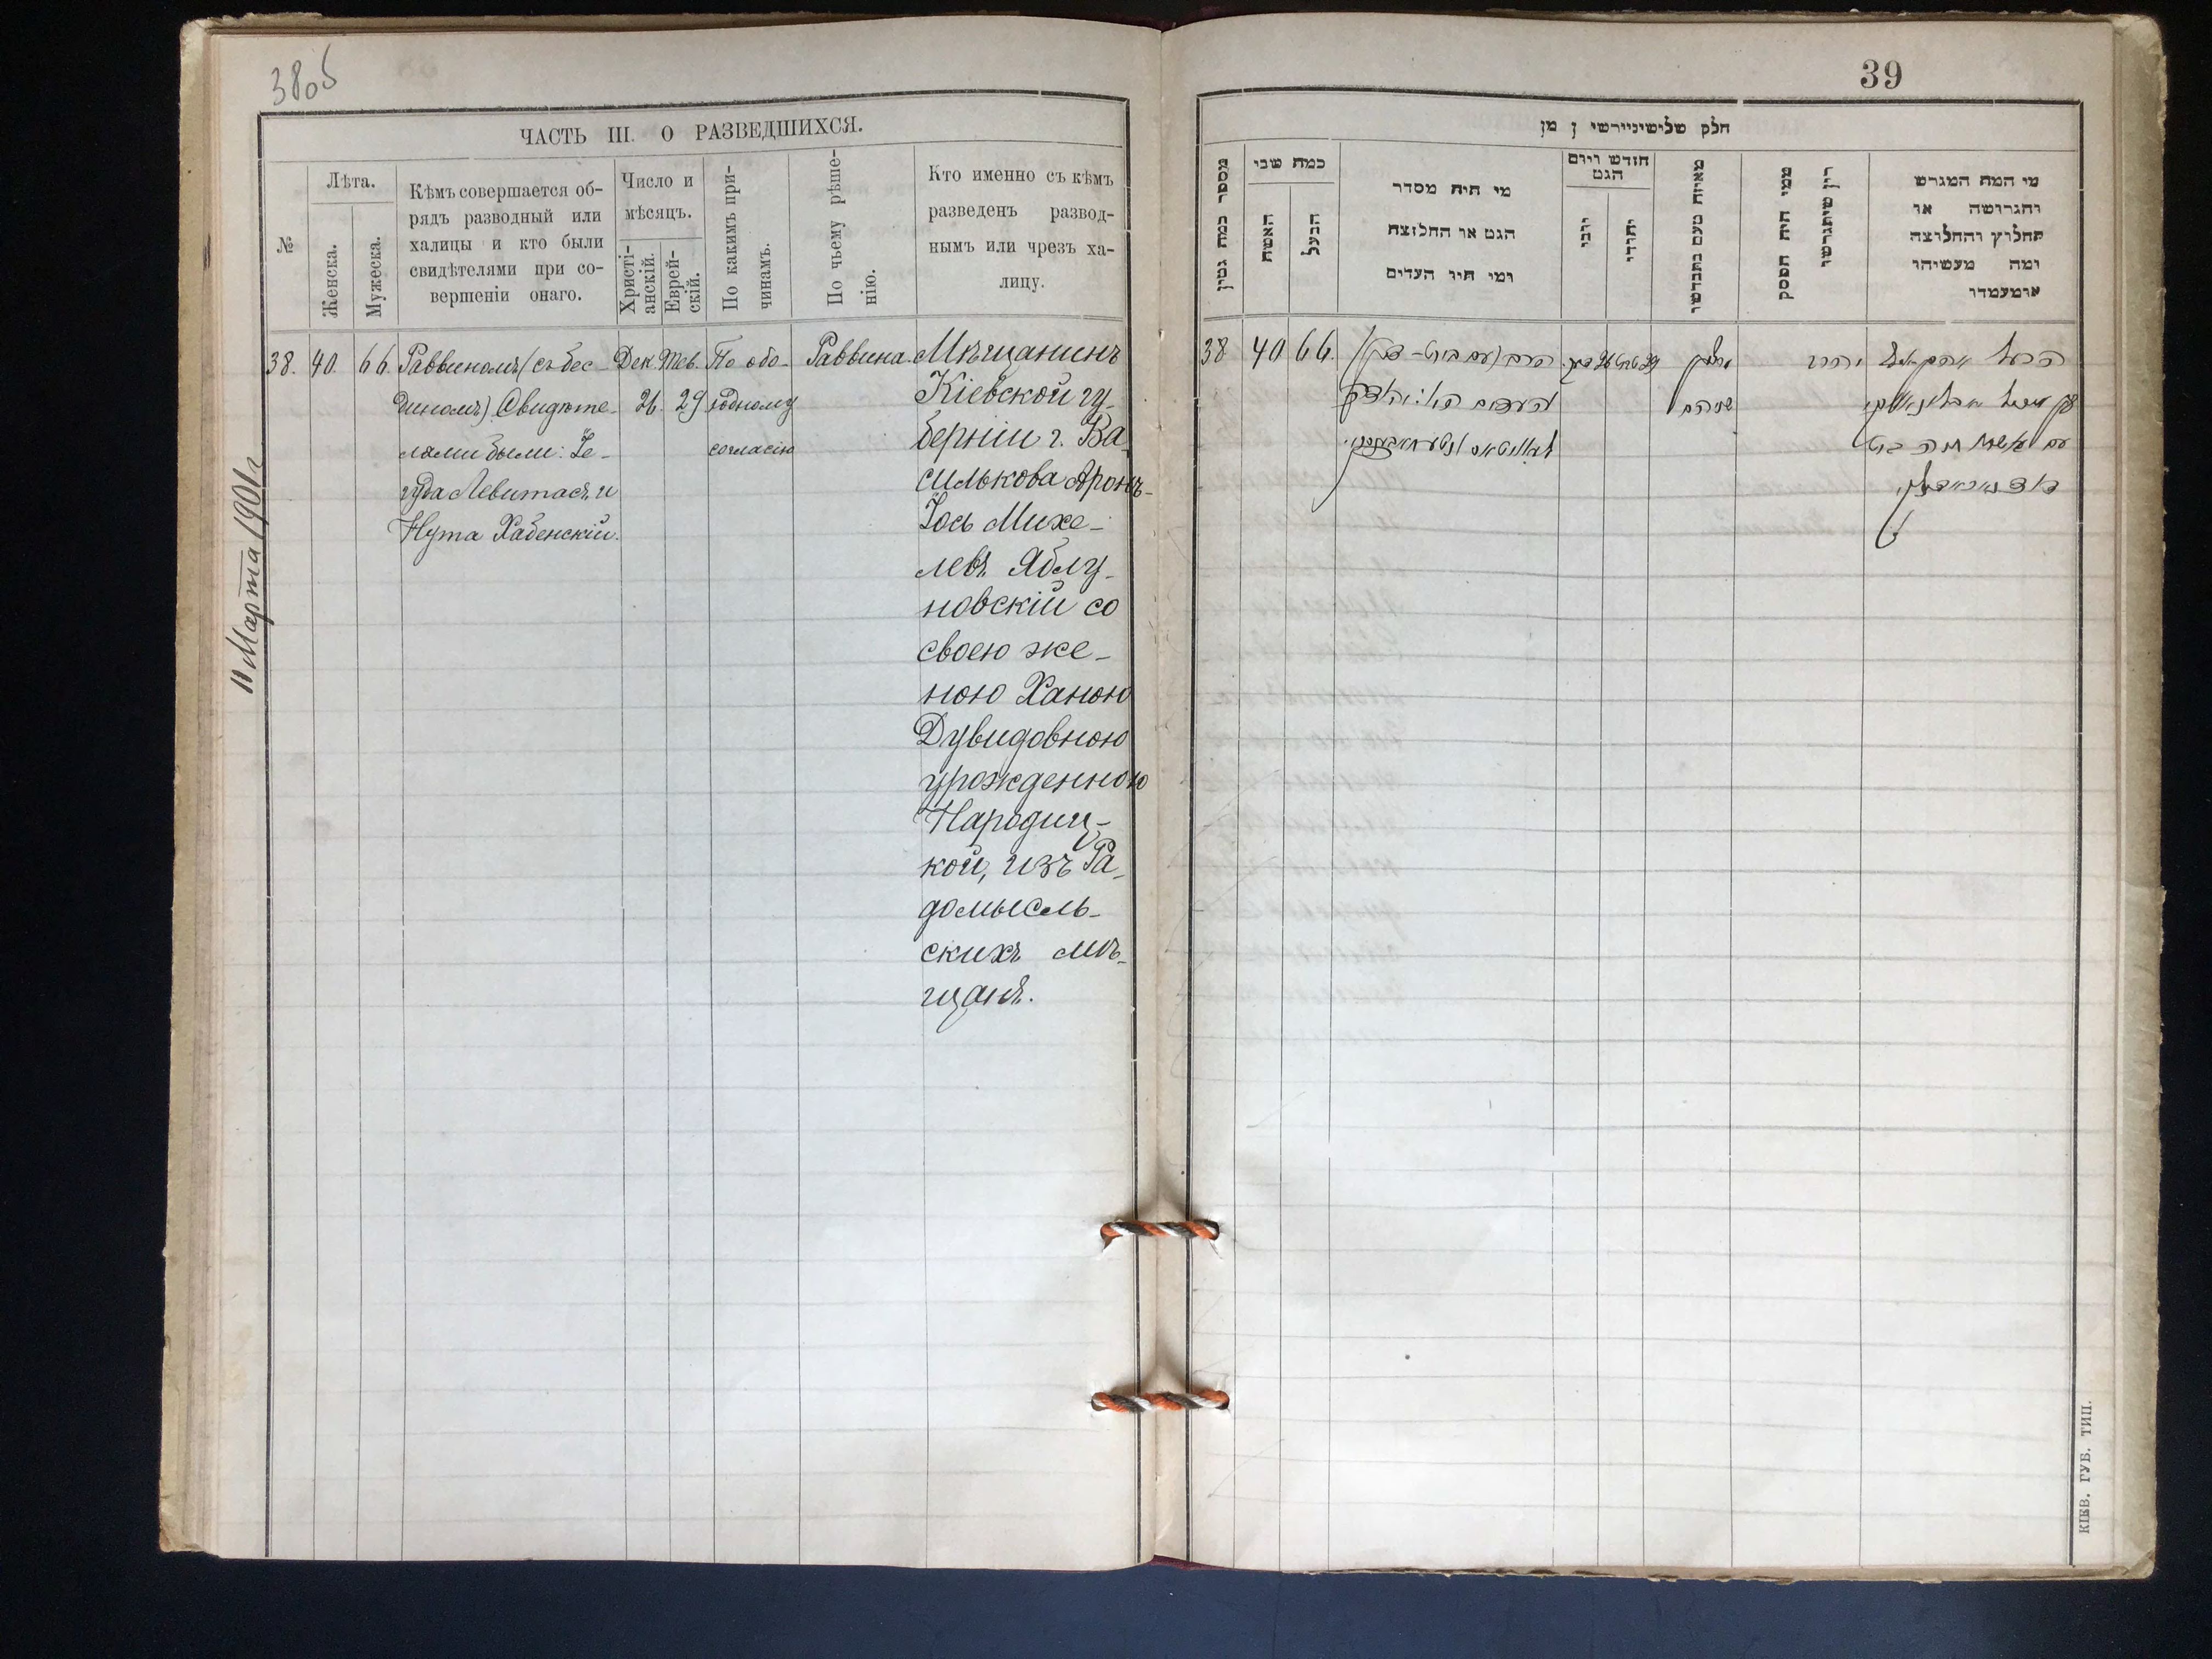 38об
ЧАСТЬ III. О РАЗВЕДШИХСЯ.
№
Лѣта.
Женска.
Мужеска.
Кѣмъ совершается об-
рядъ разводный или
халицы и кто были
свидѣтелями при со-
вершеніи онаго.
Число и
мѣсяцъ.
Христі-
анскій.
Еврей-
скій.
По какимъ при-
чинамъ.
По чьему рѣше-
нію.
Кто именно съ кѣмъ
разведенъ развод-
нымъ или чрезъ ха-
лицу.
38.
40.
66.
Раввиномъ (съ бес-
диномъ). Свидѣте-
лями были: Іе-
гуда Левитасъ и
Нута Хабенскій.
Дек.
26.
Тев.
29
По обо-
юдному
согласію
Раввина.
Мѣщанинъ
Кіевской гу-
берніи г. Ва-
силькова Аронъ-
Іось Михе-
левъ Яблу-
новскій со
своею же-
ною Ханою
Дувидовною
урожденною
Народиц-
кой, изъ Ра-
домысль-
скихъ мѣ-
щанъ.
11 Марта 1901 г.
39
חלק שלישי
מספר כמה גטין
כמה שני
האשה
הבעל
מי היה מסדר
הגט או החלוצה
ומי היו העדים
חודש ויום
הגט
יהודי
ממי היה הפסק
דין שיתגרשו
מי המה המגרש
והגרושה או
החלוץ והחלוצה
ומה מעשיהו
ומעמדו
38
40
66.
הרב (עם בית-דין)
והעדים
29
26
שניהם
הבעל
עם אשתו חנה בת
КІЕВ. ГУБ. ТИП.